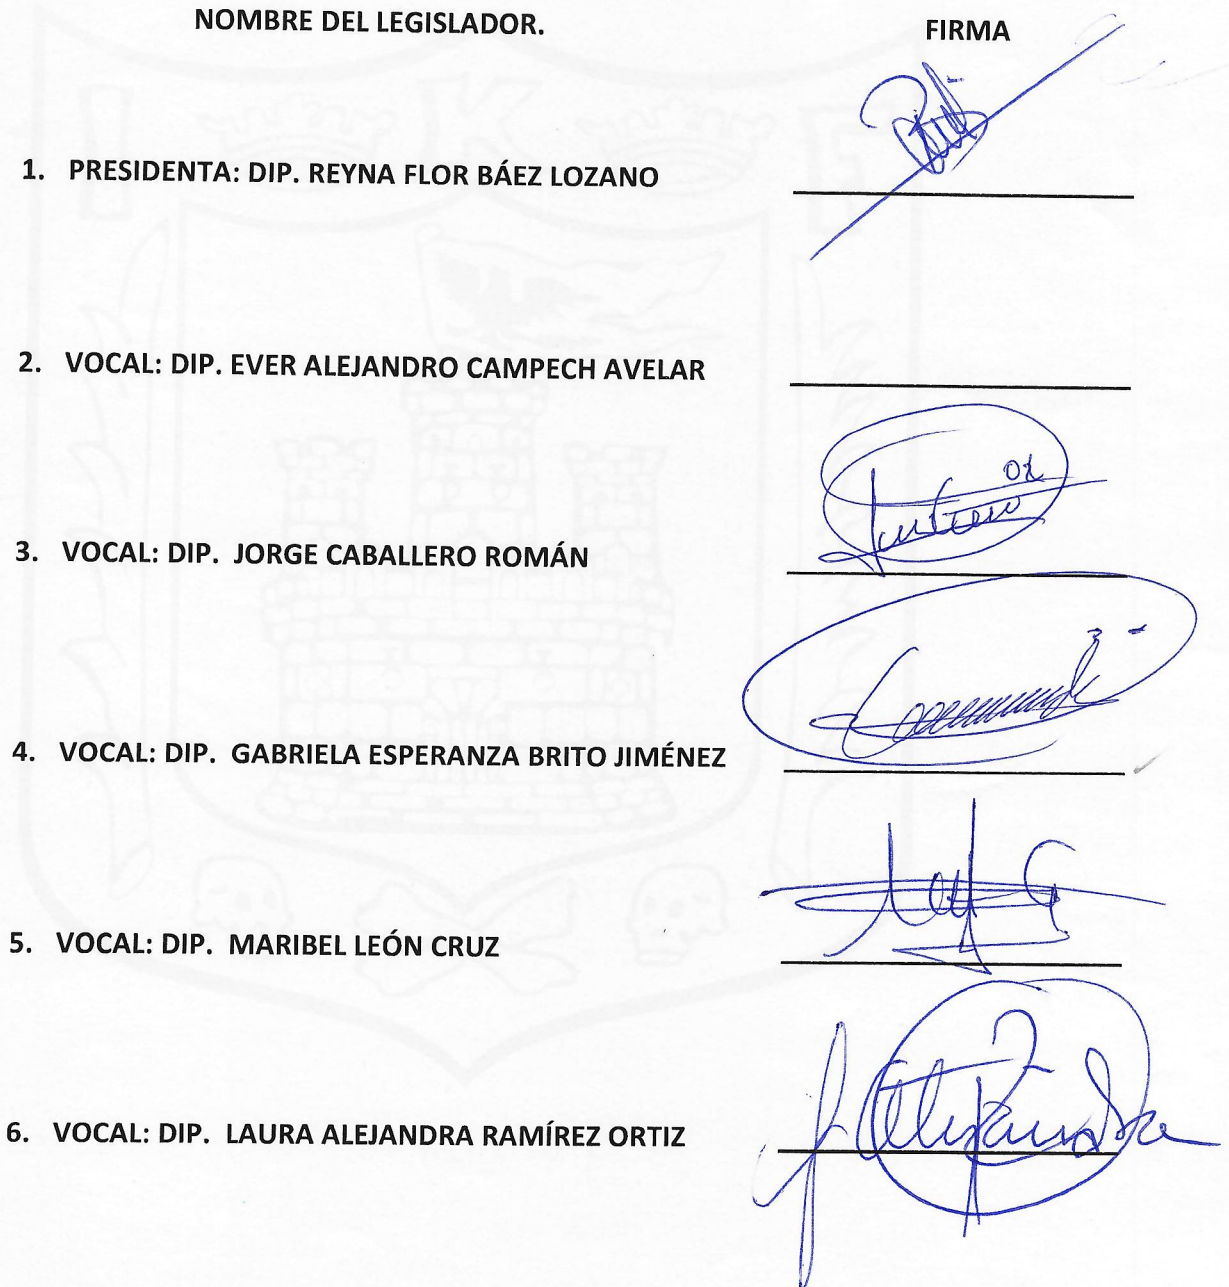 NOMBRE DEL LEGISLADOR. FIRMA
1. PRESIDENTA: DIP. REYNA FLOR BÁEZ LOZANO
2. VOCAL: DIP. EVER ALEJANDRO CAMPECH AVELAR
3. VOCAL: DIP. JORGE CABALLERO ROMÁN
4. VOCAL: DIP. GABRIELA ESPERANZA BRITO JIMÉNEZ
5. VOCAL: DIP. MARIBEL LEÓN CRUZ
6. VOCAL: DIP. LAURA ALEJANDRA RAMÍREZ ORTIZ